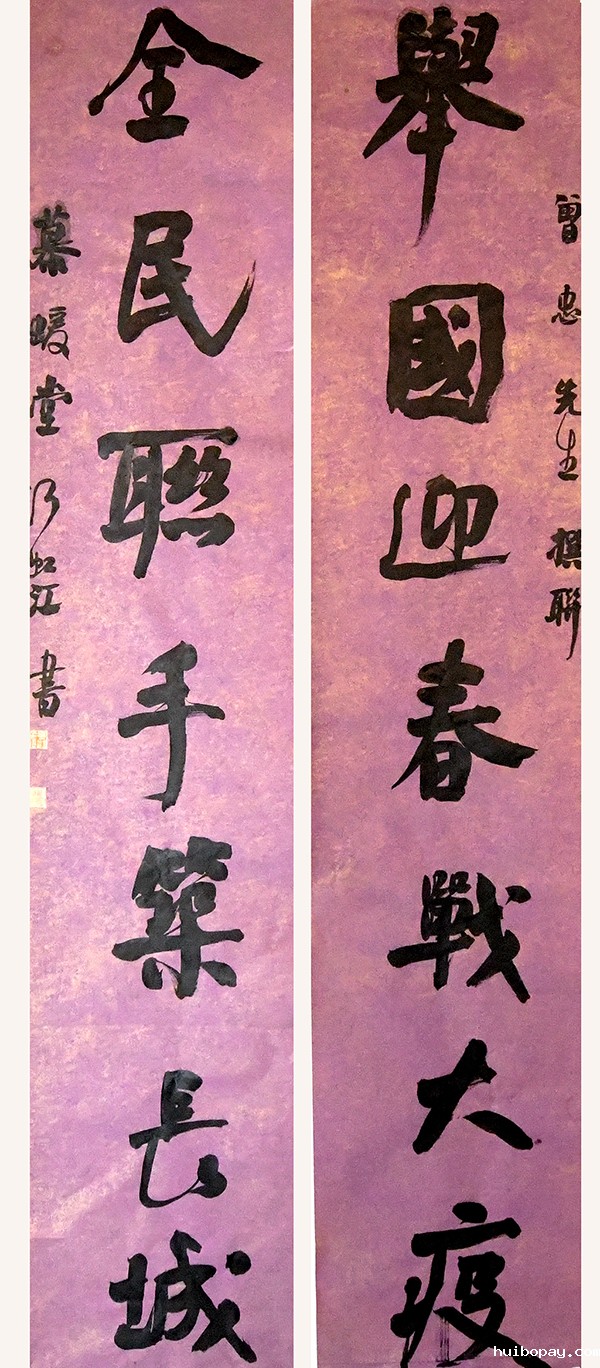 曾忠先生撰聯
舉國迎春戰大疫
全民聯手築長城
慕暖堂 虹江書
huibopay.com